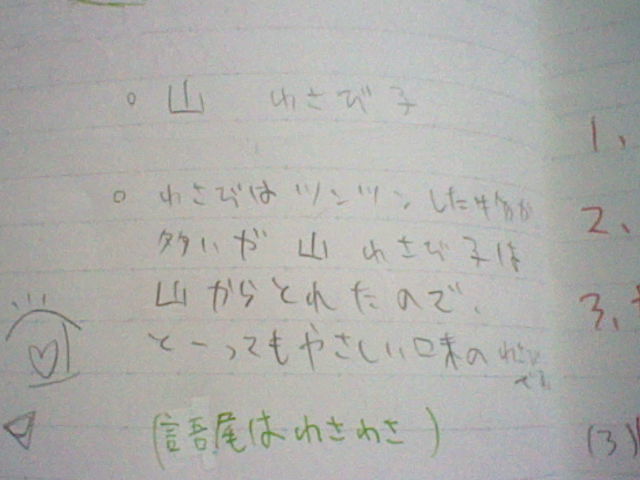 。山 わさび子
。わさびはツンツンした物が
多いが 山 わさび子は
山からとれたので、
とーってもやさしい口味の わさび
です
(語尾はわさわさ)
1、
2、
3、
(3)